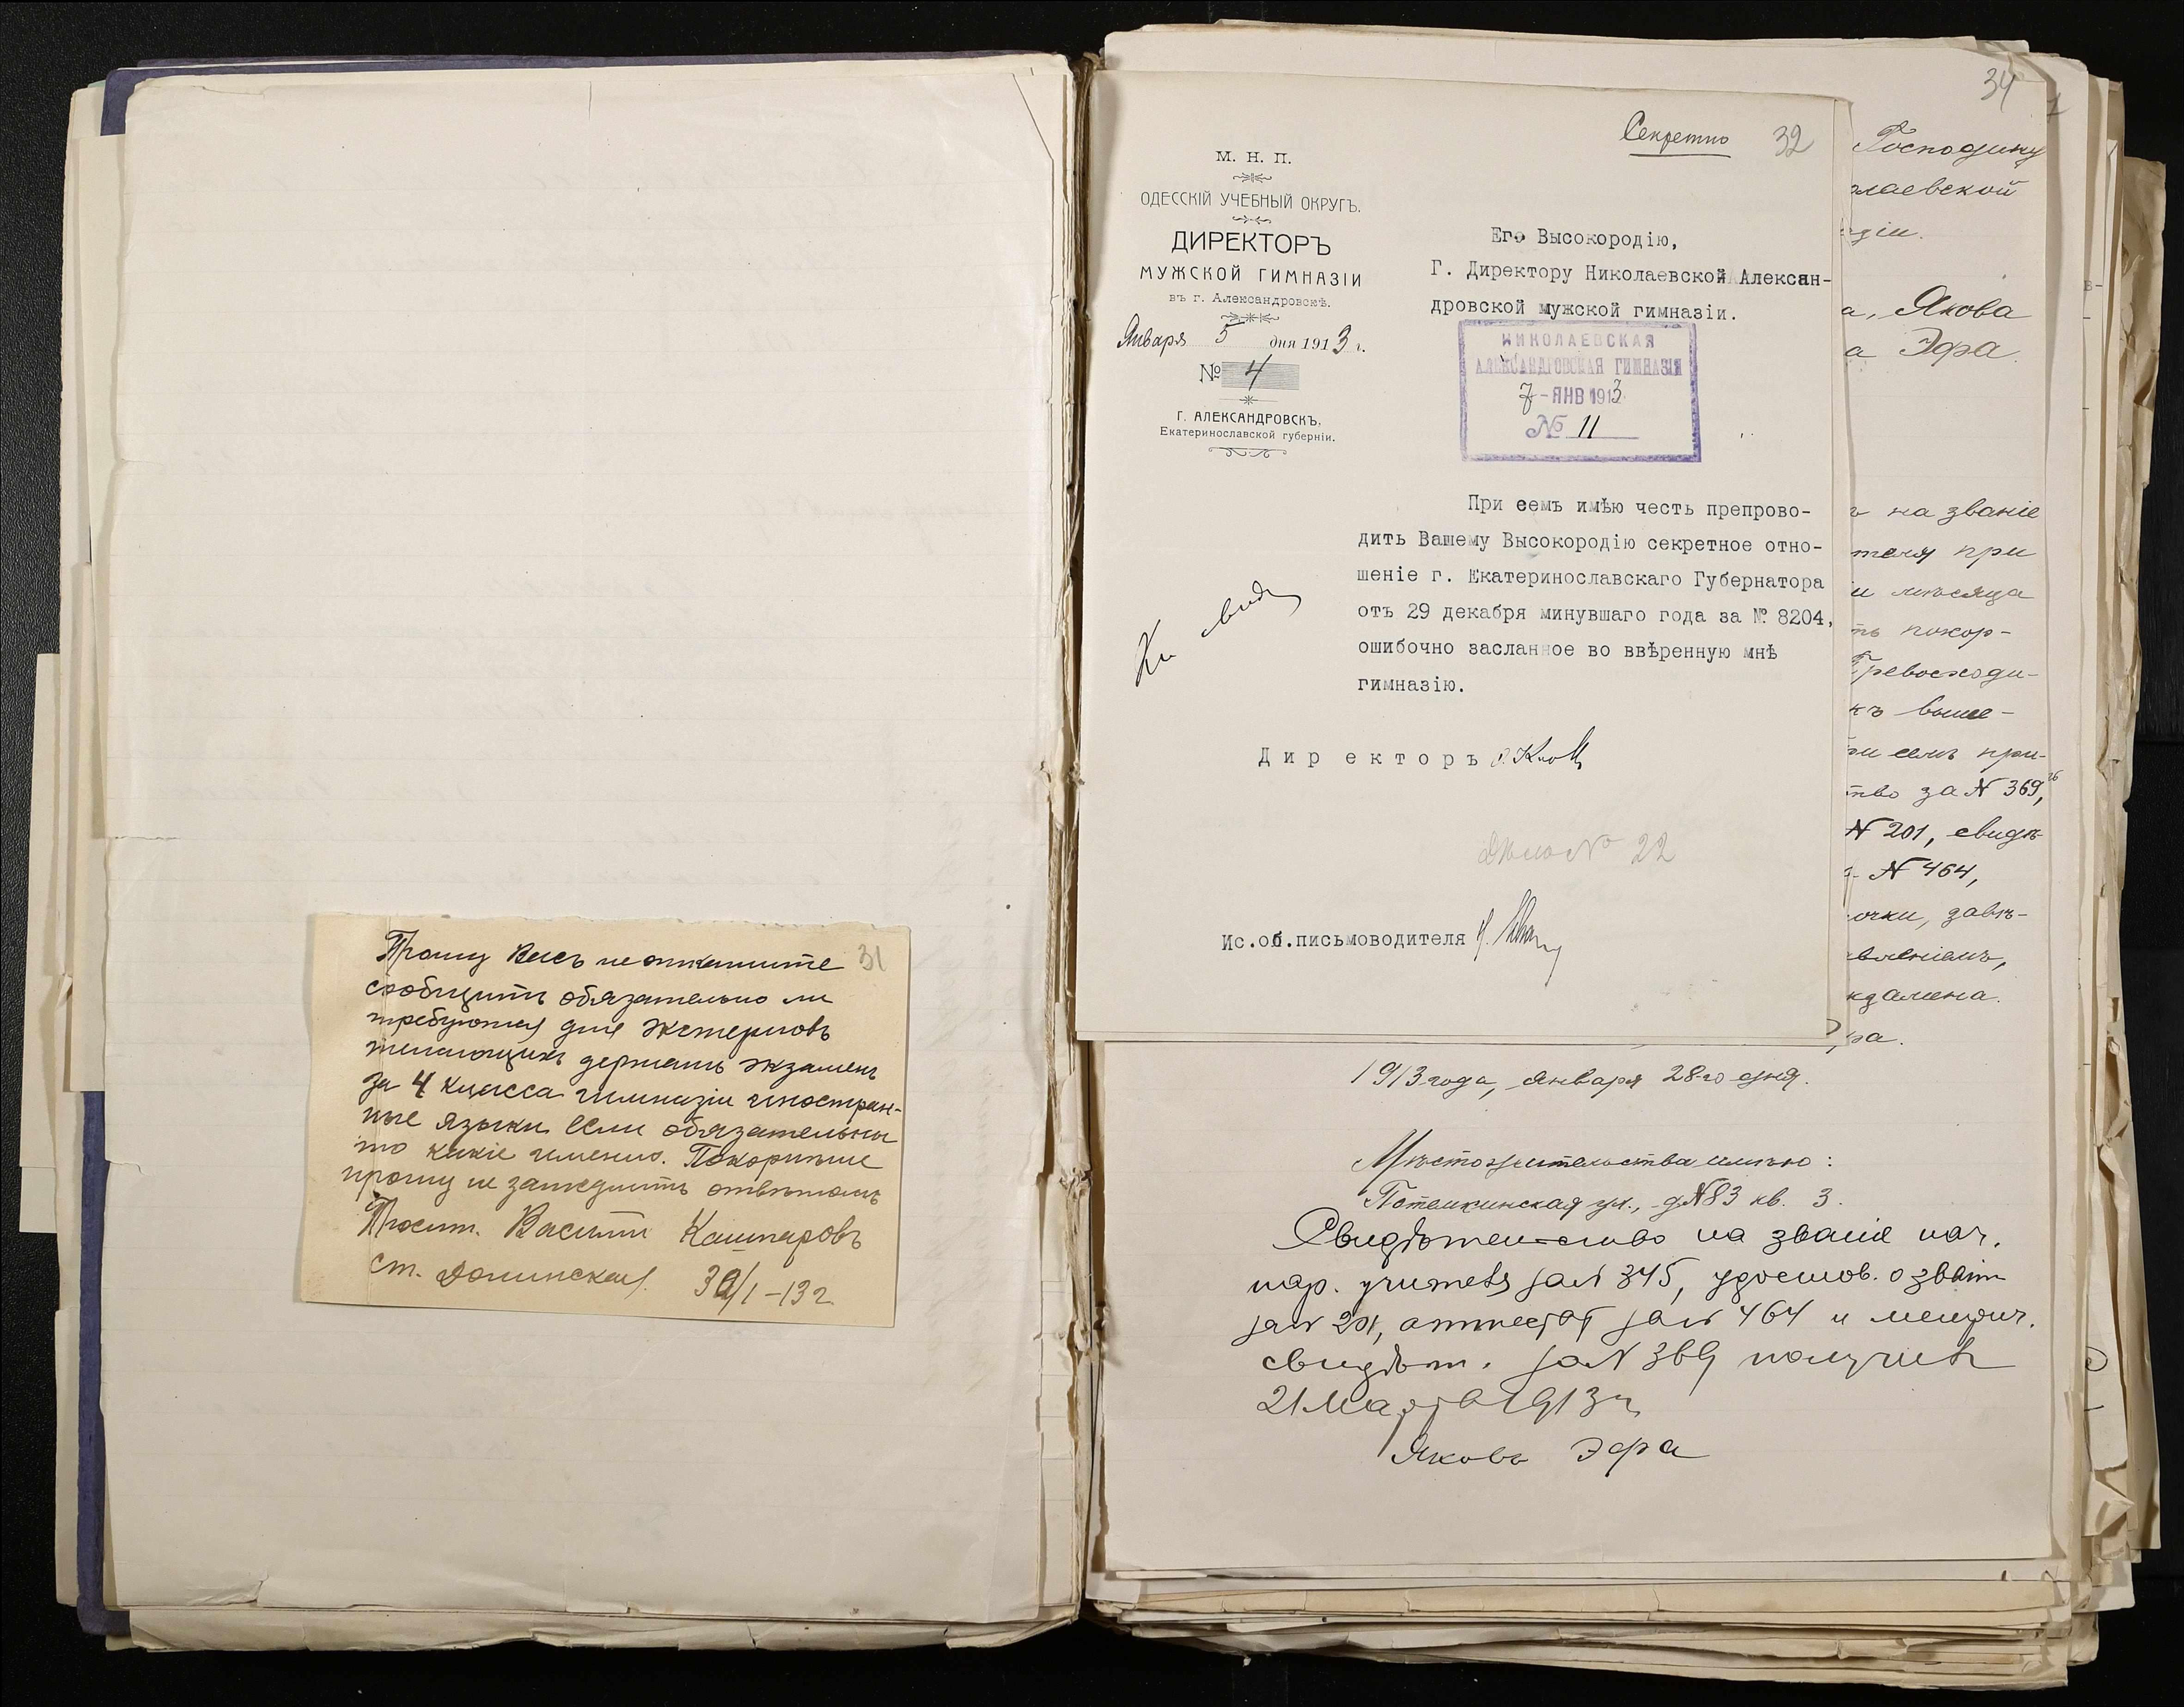 Прошу Васъ не откажите 31
сообщить обязательно ли
требуются для экстерновъ
желающихъ держать экзаменъ
за 4 класса гимназіи иностран-
ные языки. Если обязательны
то какіе именно. Покорнѣйше
прошу не замедлить отвѣтомъ
Василій Кашпаровъ
ст. Долинская. 30/I-13 г.
Секретно 32
М. Н. П.
ОДЕССКІЙ УЧЕБНЫЙ ОКРУГЪ.
ДИРЕКТОРЪ
МУЖСКОЙ ГИМНАЗІИ
въ г. Александровскѣ.
Января 5 дня 1913 г.
№ 4
Г. АЛЕКСАНДРОВСКЪ,
Екатеринославской губерніи.
Его Высокородію,
Г. Директору Николаевской Алексан-
дровской мужской гимназіи.
НИКОЛАЕВСКАЯ
АЛЕКСАНДРОВСКАЯ ГИМНАЗІЯ
7-ЯНВ 1913
№ 11
При семъ имѣю честь препрово-
дить Вашему Высокородію секретное отно-
шеніе г. Екатеринославскаго Губернатора
отъ 29 декабря минувшаго года за № 8204,
ошибочно засланное во ввѣренную мнѣ
гимназію.
Директоръ
Дѣло № 22
Ис.об.письмоводителя
34
Господину
олаевской
азіи.
а, Якова
а Эфа.
ъ на званіе
теля при
и мѣсяца
ть покор-
Превосходи-
къ выше-
ри семъ при-
тво за N 369,
N 201, свидѣ-
N 464,
очки, завѣ-
вленіемъ,
кзамена.
фа.
1913 года, января 28-го дня.
Мѣстожительства имѣю:
Потемкинская ул., д N 83 кв. 3.
Свидѣтельство на званіе нач.
нар. учителя за N 345, удостов. о званіи
за N 201, аттестат за N 464 и метрич.
свидѣт. за N 369 получилъ
21 Марта 1913 г.
Яковъ Эфа